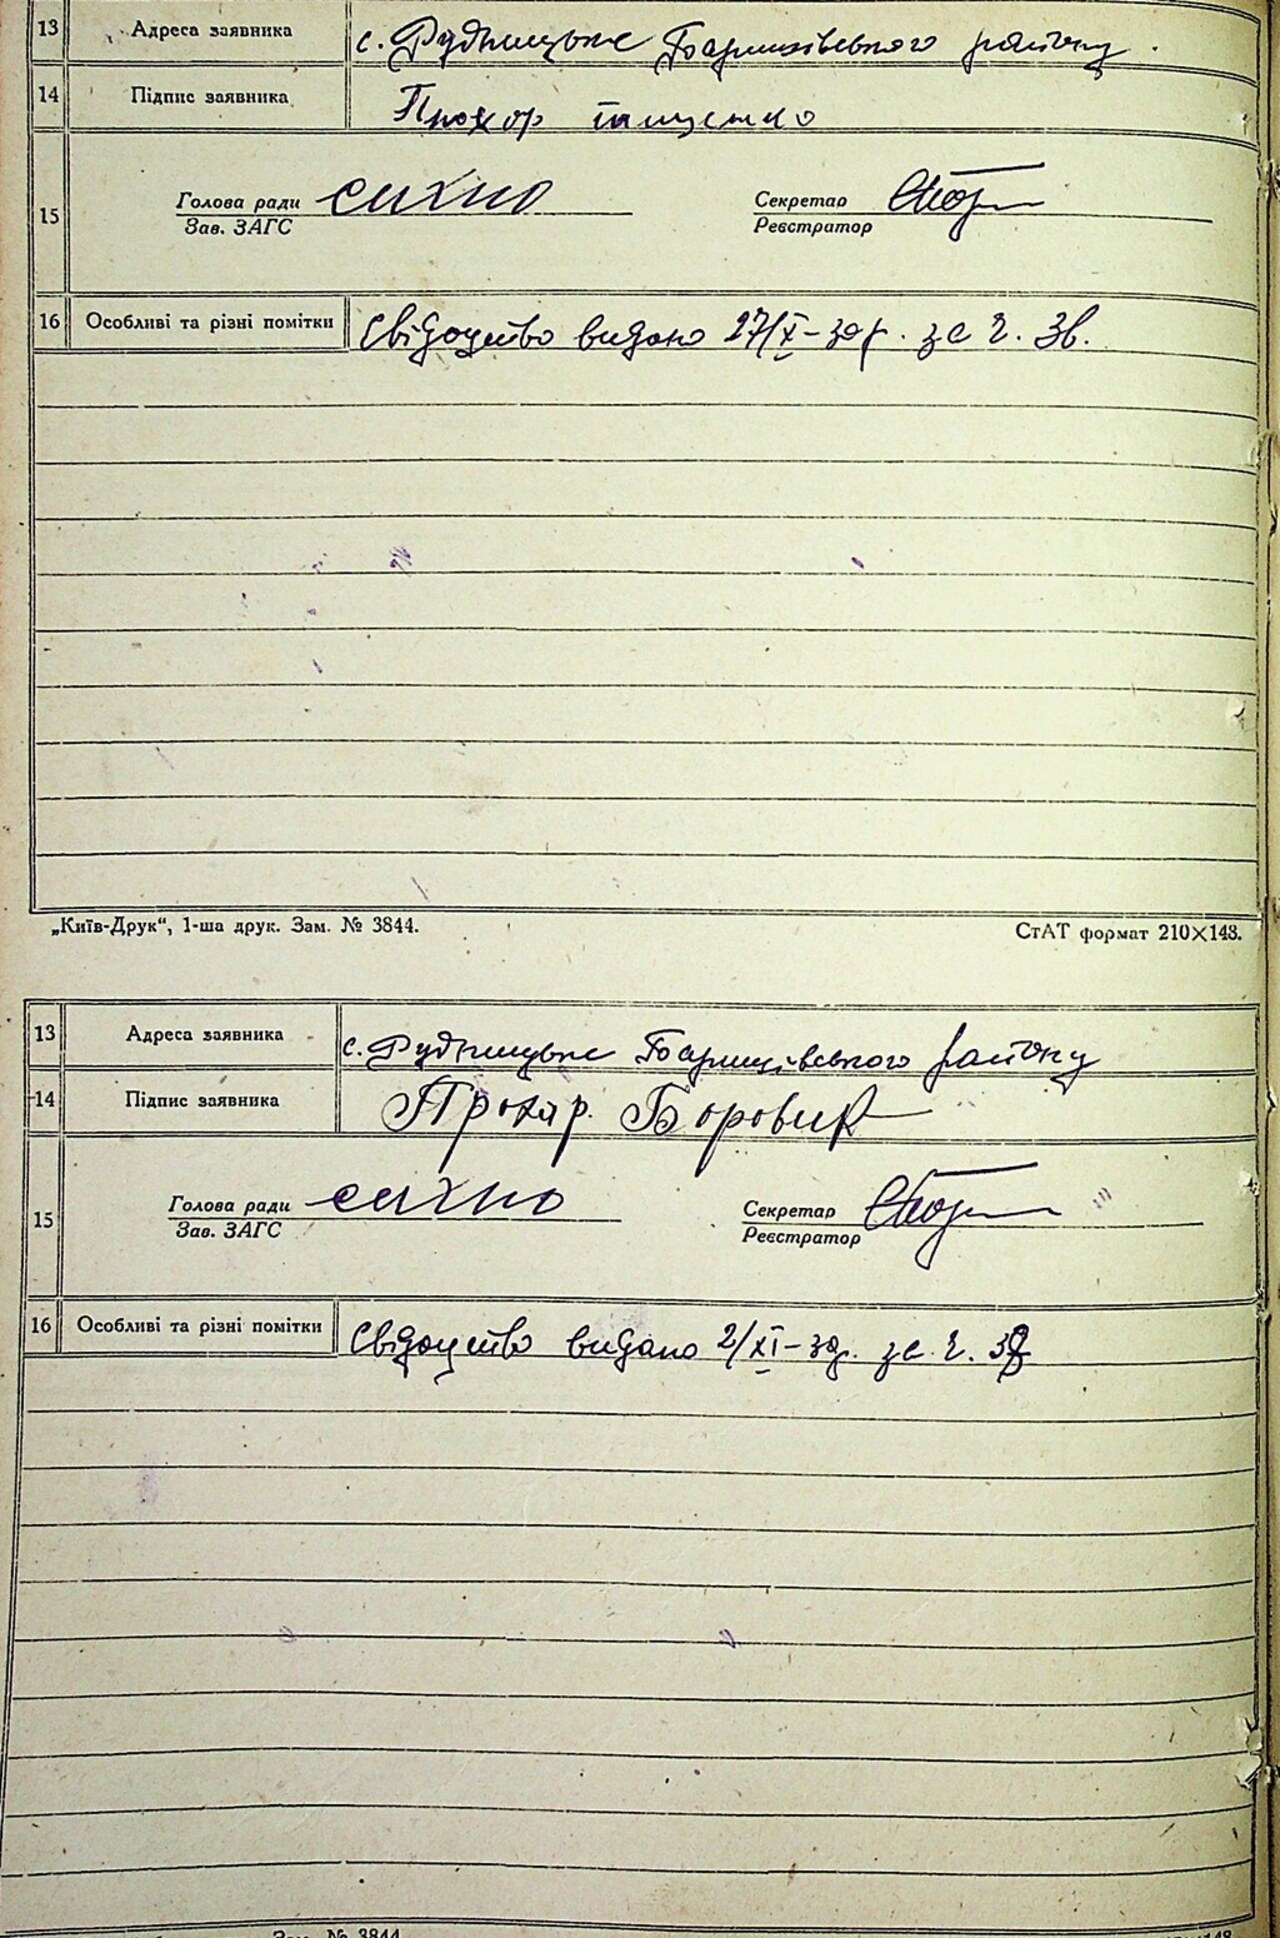 13 Адреса заявника с. Рудницьке Баришівського району.
14 Підпис заявника Прохор
15 Голова ради Сихно Секретар
Зав. ЗАГС Реєстратор
16 Особливі та різні помітки Свідоцтво видано 27/X-32р. за ч. 36.
„Київ-Друк“, 1-ша друк. Зам. № 3844. СтАТ формат 210×148.
13 Адреса заявника с. Рудницьке Баришівського району
14 Підпис заявника Прохор Боровик
15 Голова ради Сихно Секретар
Зав. ЗАГС Реєстратор
16 Особливі та різні помітки Свідоцтво видано 2/XI-32р. за ч.
Зам. № 3844